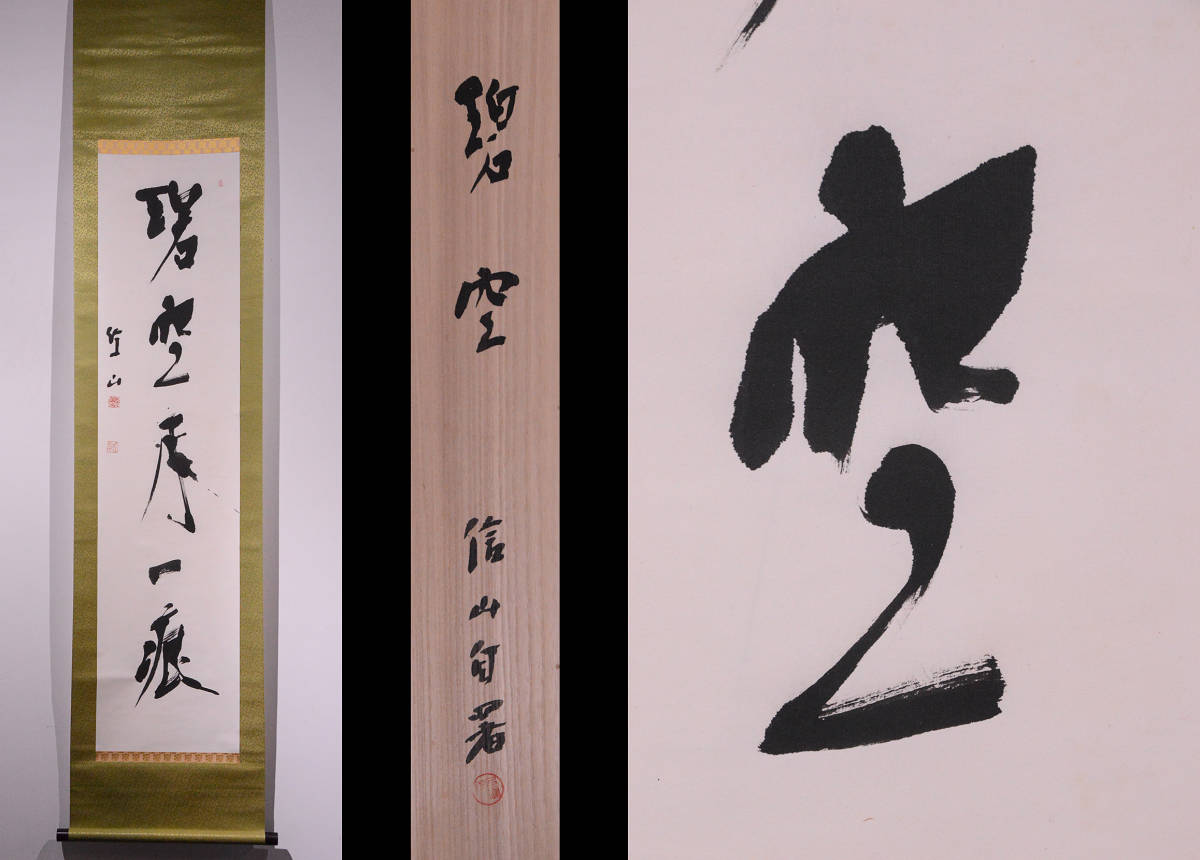 碧空一痕
信山
碧空
信山自署
空